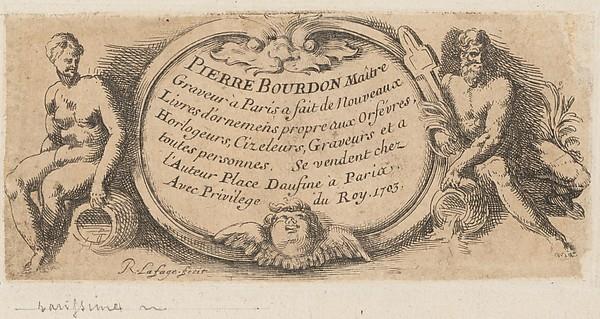 PIERRE BOURDON Maître
Graveur a Paris a fait de Nouveaux
Livres d'ornemens propre aux Orfévres,
Horlogeurs, Cizeleurs, Graveurs et a
toutes personnes. Se vendent chez
l'Auteur Place Daufine à Paris,
Avec Privilege du Roy. 1703.
R. Lafage fecit
rarissime